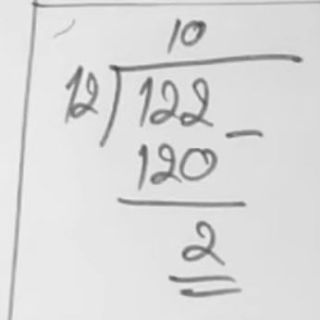 10
12)122
−
120
2